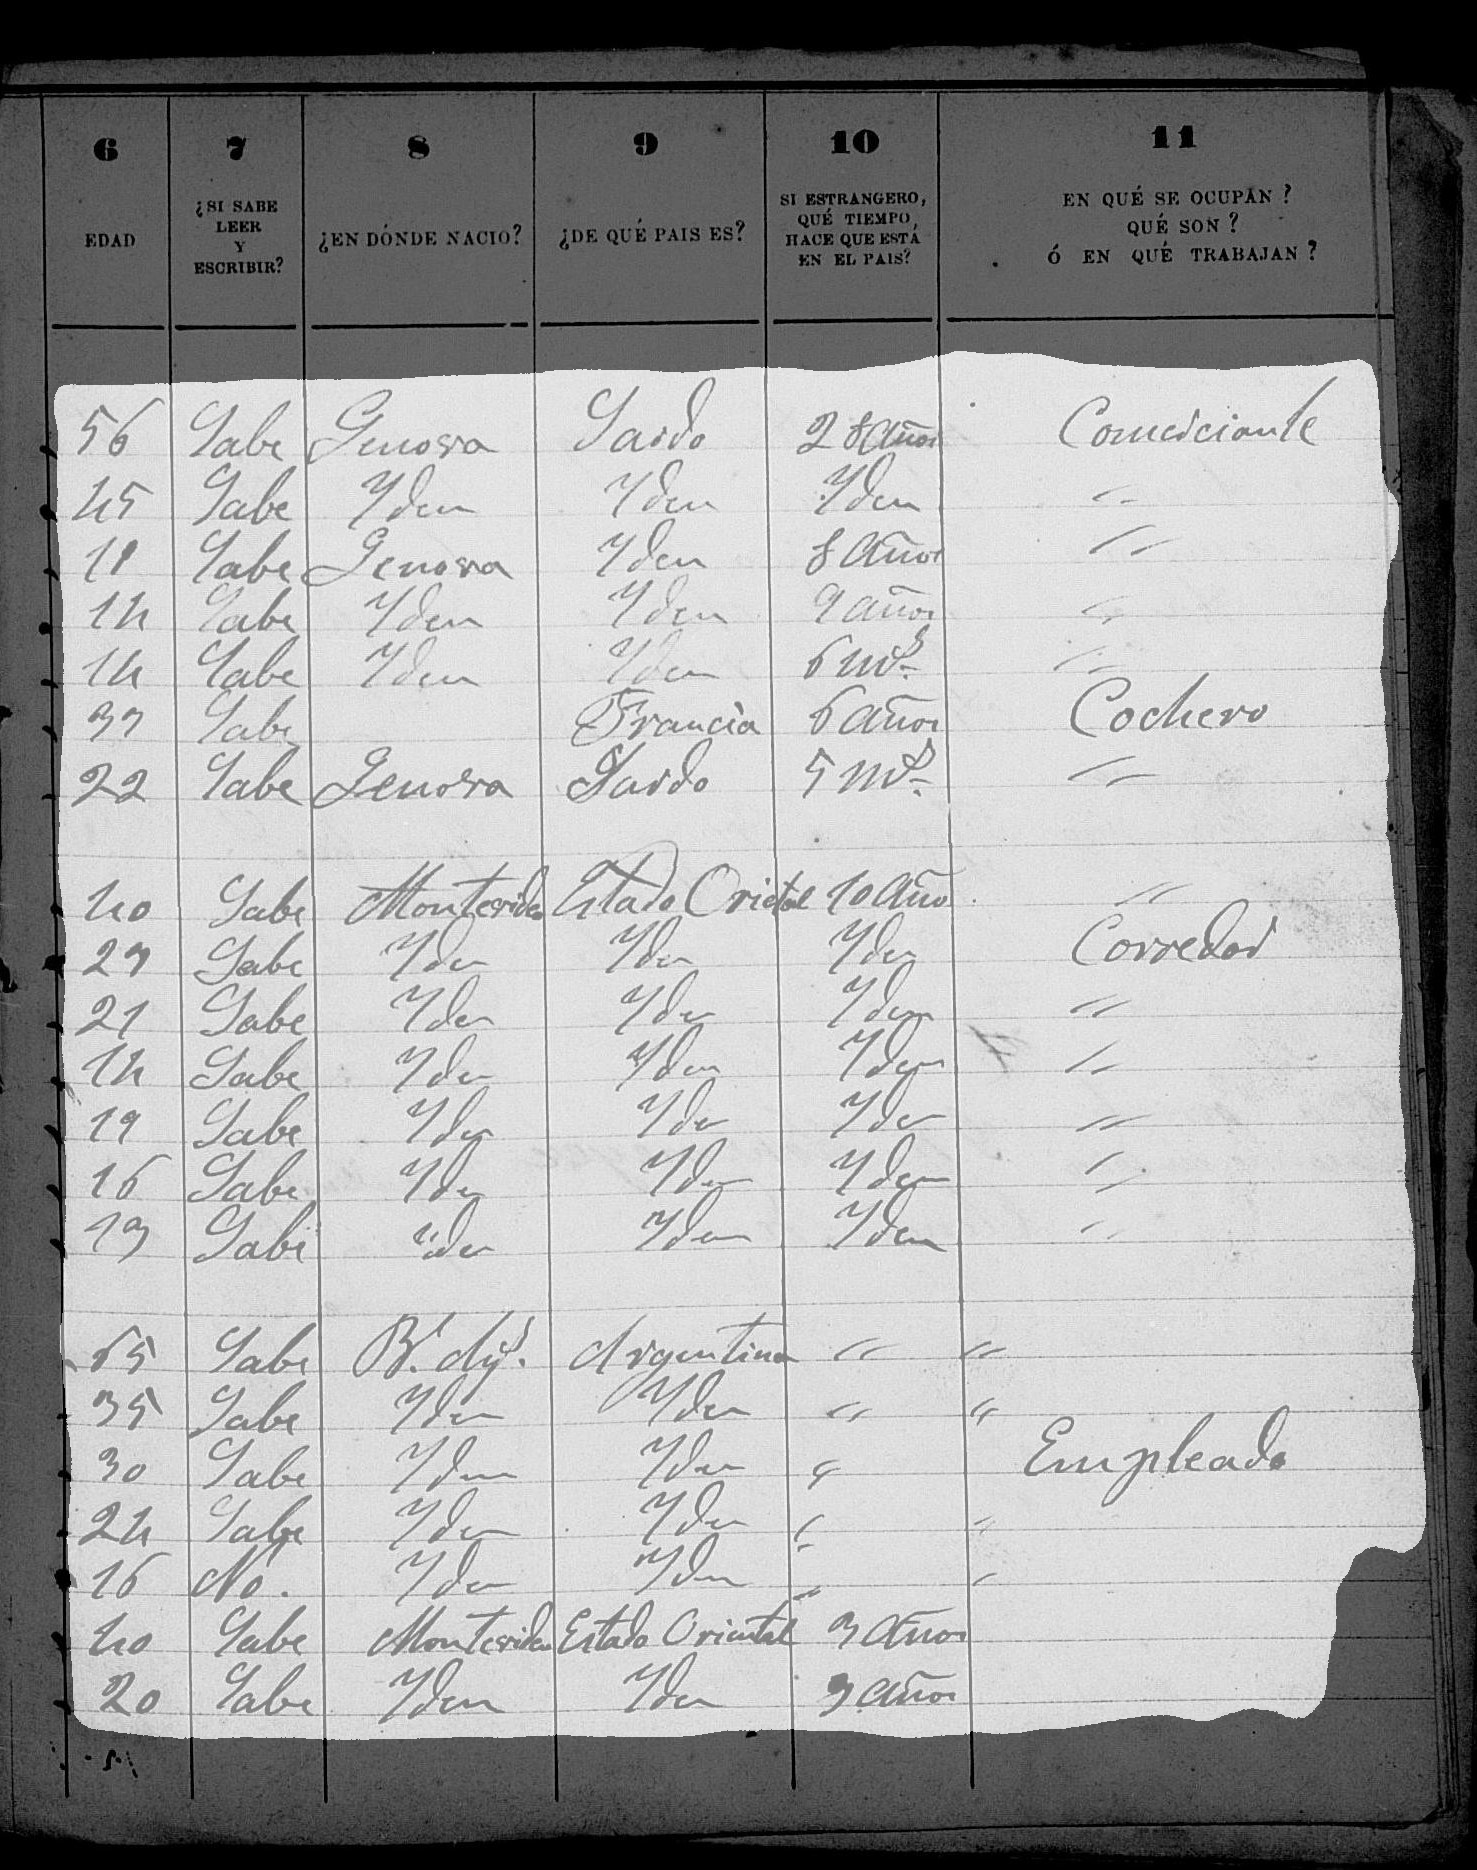 6 7 8 9 10 11
EDAD ¿SI SABE LEER Y ESCRIBIR? ¿EN DÓNDE NACIO? ¿DE QUÉ PAIS ES? SI ESTRANGERO, QUÉ TIEMPO HACE QUE ESTÁ EN EL PAIS? EN QUÉ SE OCUPAN? QUÉ SON? Ó EN QUÉ TRABAJAN?
56 Sabe Genova Sardo 28 años Comerciante
45 Sabe Yden Yden Yden "
18 Sabe Genova Yden 8 años "
14 Sabe Yden Yden 9 años "
14 Sabe Yden Yden 6 ms. "
37 Sabe Francia 6 años Cochero
22 Sabe Genova Sardo 5 ms. "
40 Sabe Montevideo Estado Orietal 10 año "
27 Sabe Yden Yden Yden Corredor
21 Sabe Yden Yden Yden "
14 Sabe Yden Yden Yden "
19 Sabe Yden Yden Yden "
16 Sabe Yden Yden Yden "
13 Sabe Yden Yden Yden "
65 Sabe Bs. Ays. Argentina " "
35 Sabe Yden Yden " "
30 Sabe Yden Yden " Empleado
24 Sabe Yden Yden " "
16 No. Yden Yden " "
40 Sabe Montevideo Estado Oriental 3 años
20 Sabe Yden Yden 3 años